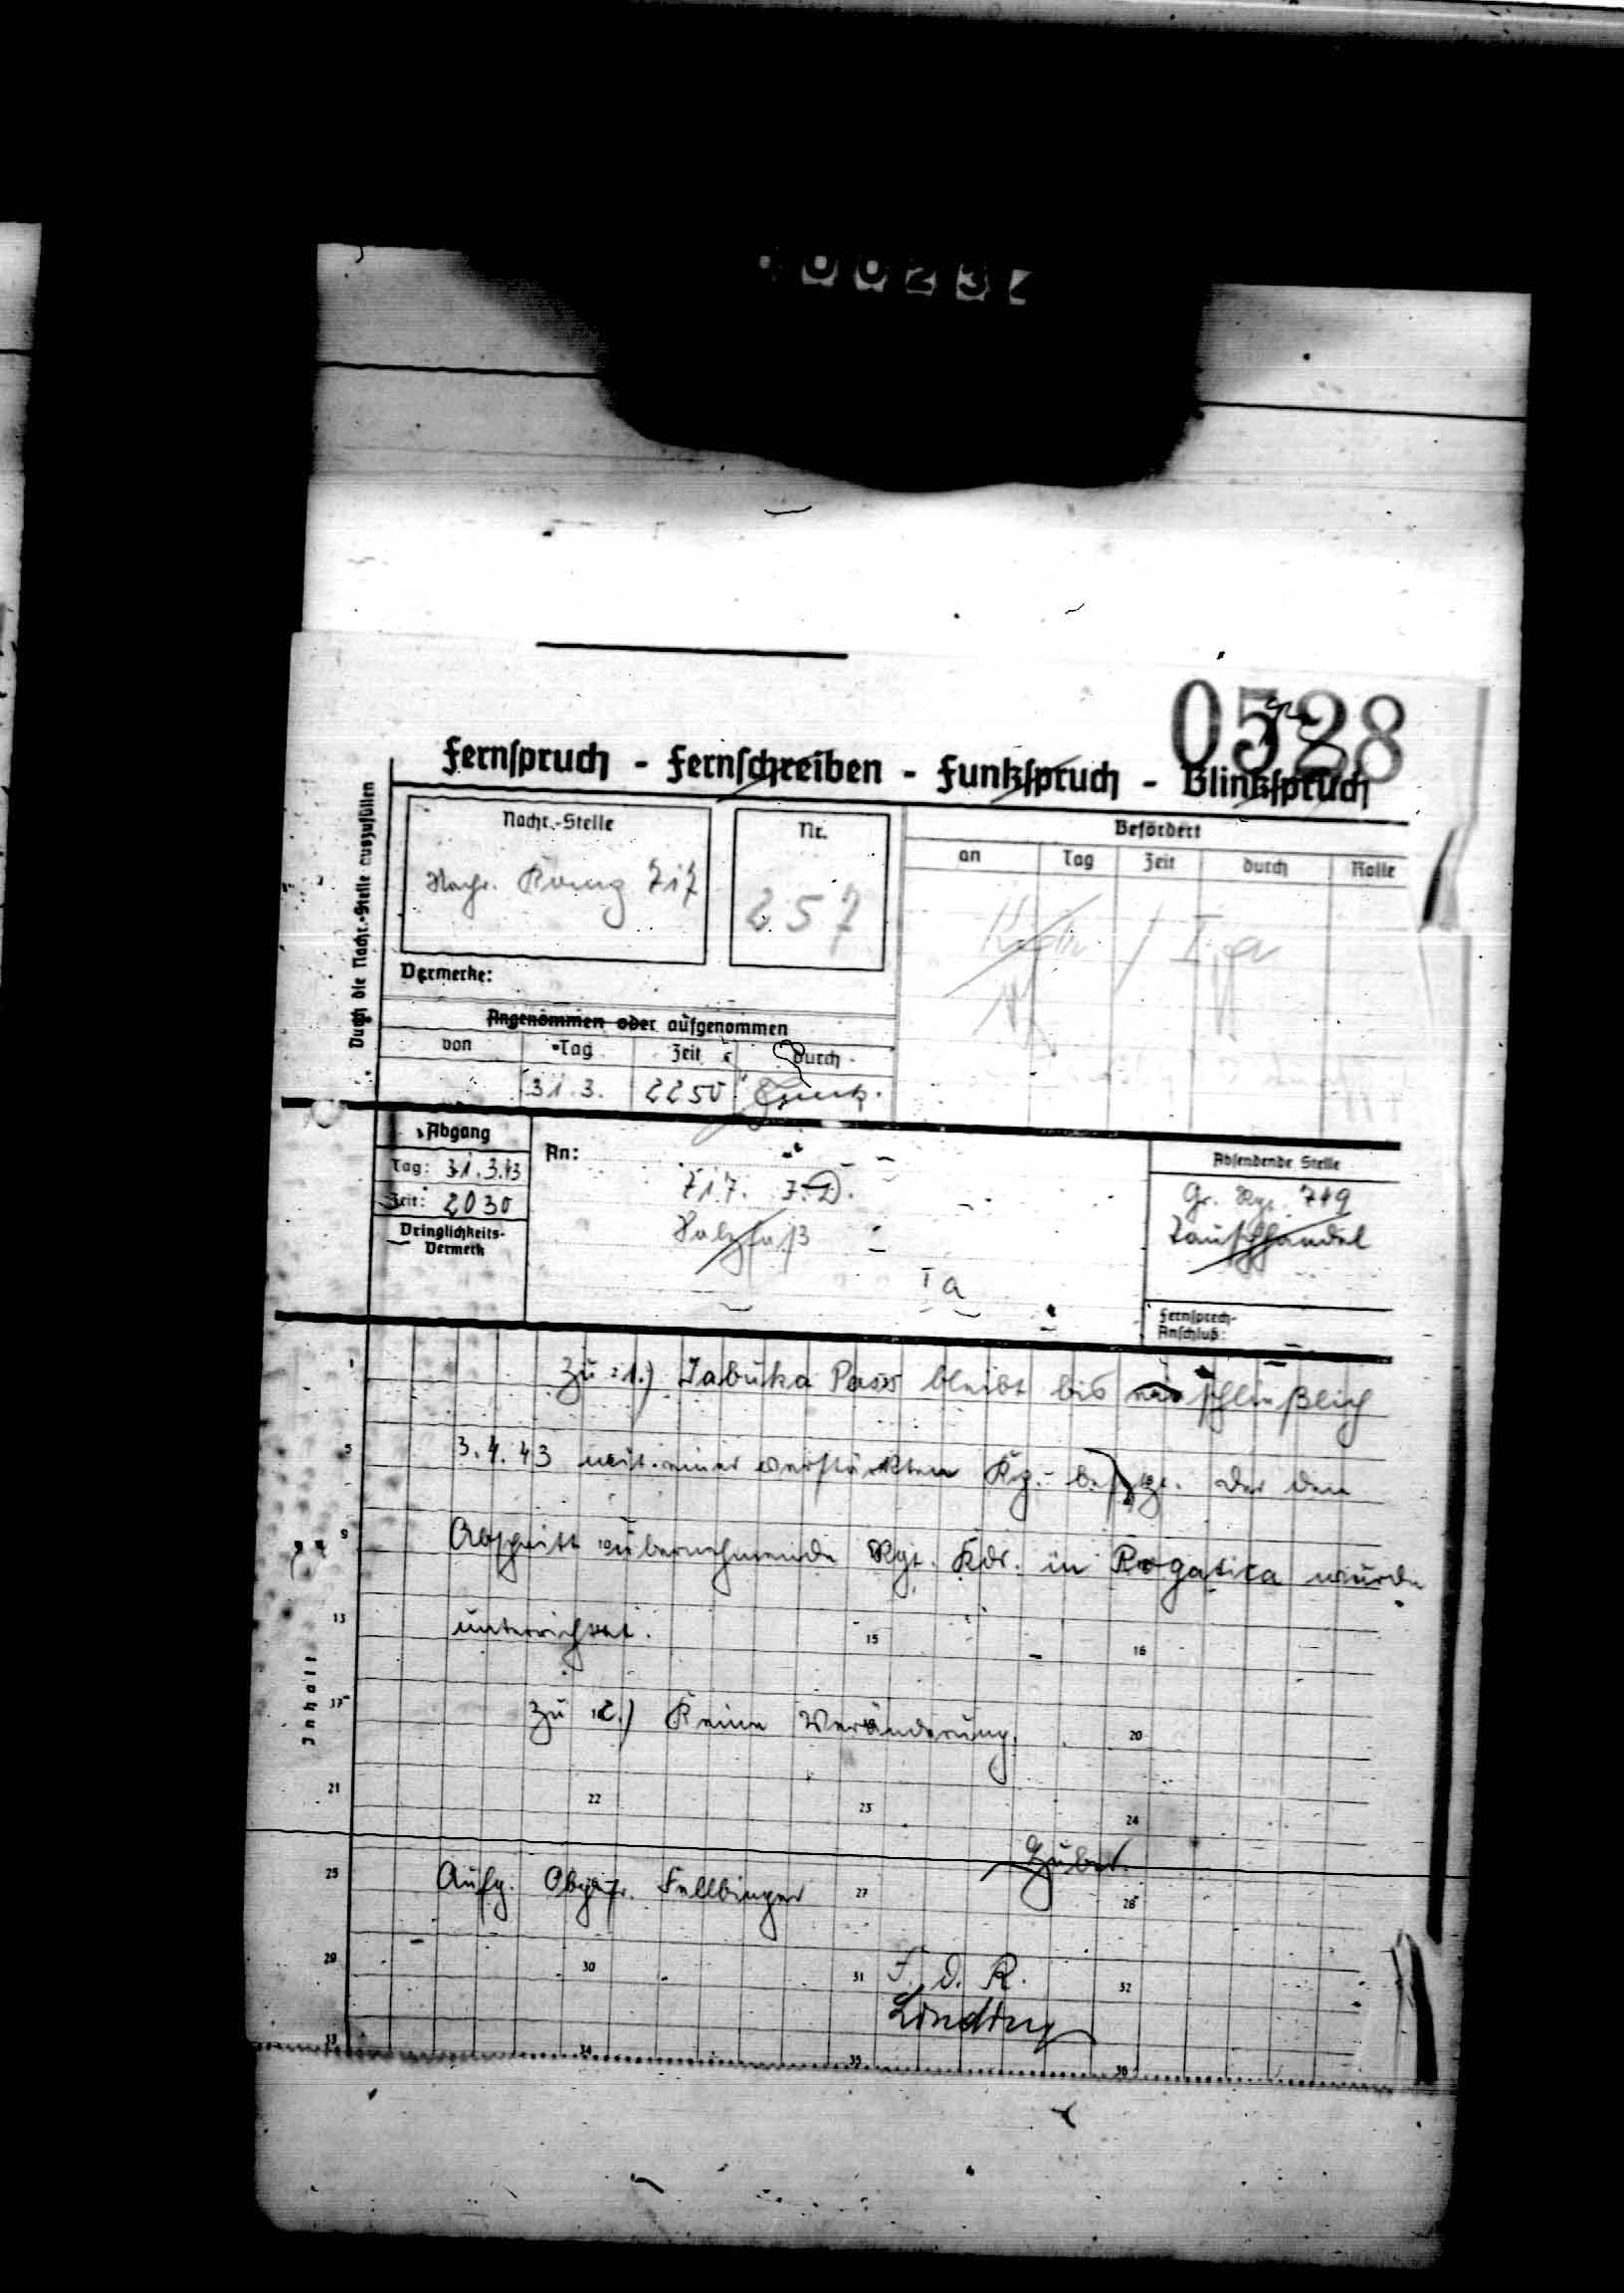 0023
0528
Fernspruch - Fernschreiben - Funkspruch - Blinkspruch
Durch die Nachr.-Stelle auszufüllen
Nachr.-Stelle
Nachr. Komp 717
Nr.
257
Befördert
an Tag Zeit durch Rolle
Ia
Vermerke:
Angenommen oder aufgenommen
von Tag Zeit durch
31.3. 2250
Abgang
Tag: 31.3.43
Zeit: 2030
Dringlichkeits-
Vermerk
An:
717. J.D.
Holzfaß
Ia
Absendende Stelle
Gr. Rgt. 749
Tauschhandel
Fernsprech-
Anschluß:
Inhalt
1
Zu 1.) Jabuka Pass bleibt bis einschließlich
5
3.4.43 mit einer verstärkten Kp. besetzt. Der den
9
Abschnitt übernehmende Rgt. Kdr. in Rogatica wurde
13
unterrichtet.
15 16
17
Zu 2.) Keine Veränderung.
20
21 22 23 24
25
Aufg. Obgefr. Fellbinger
27 28
29 30 31 32
F. d. R.
33 34 35 36